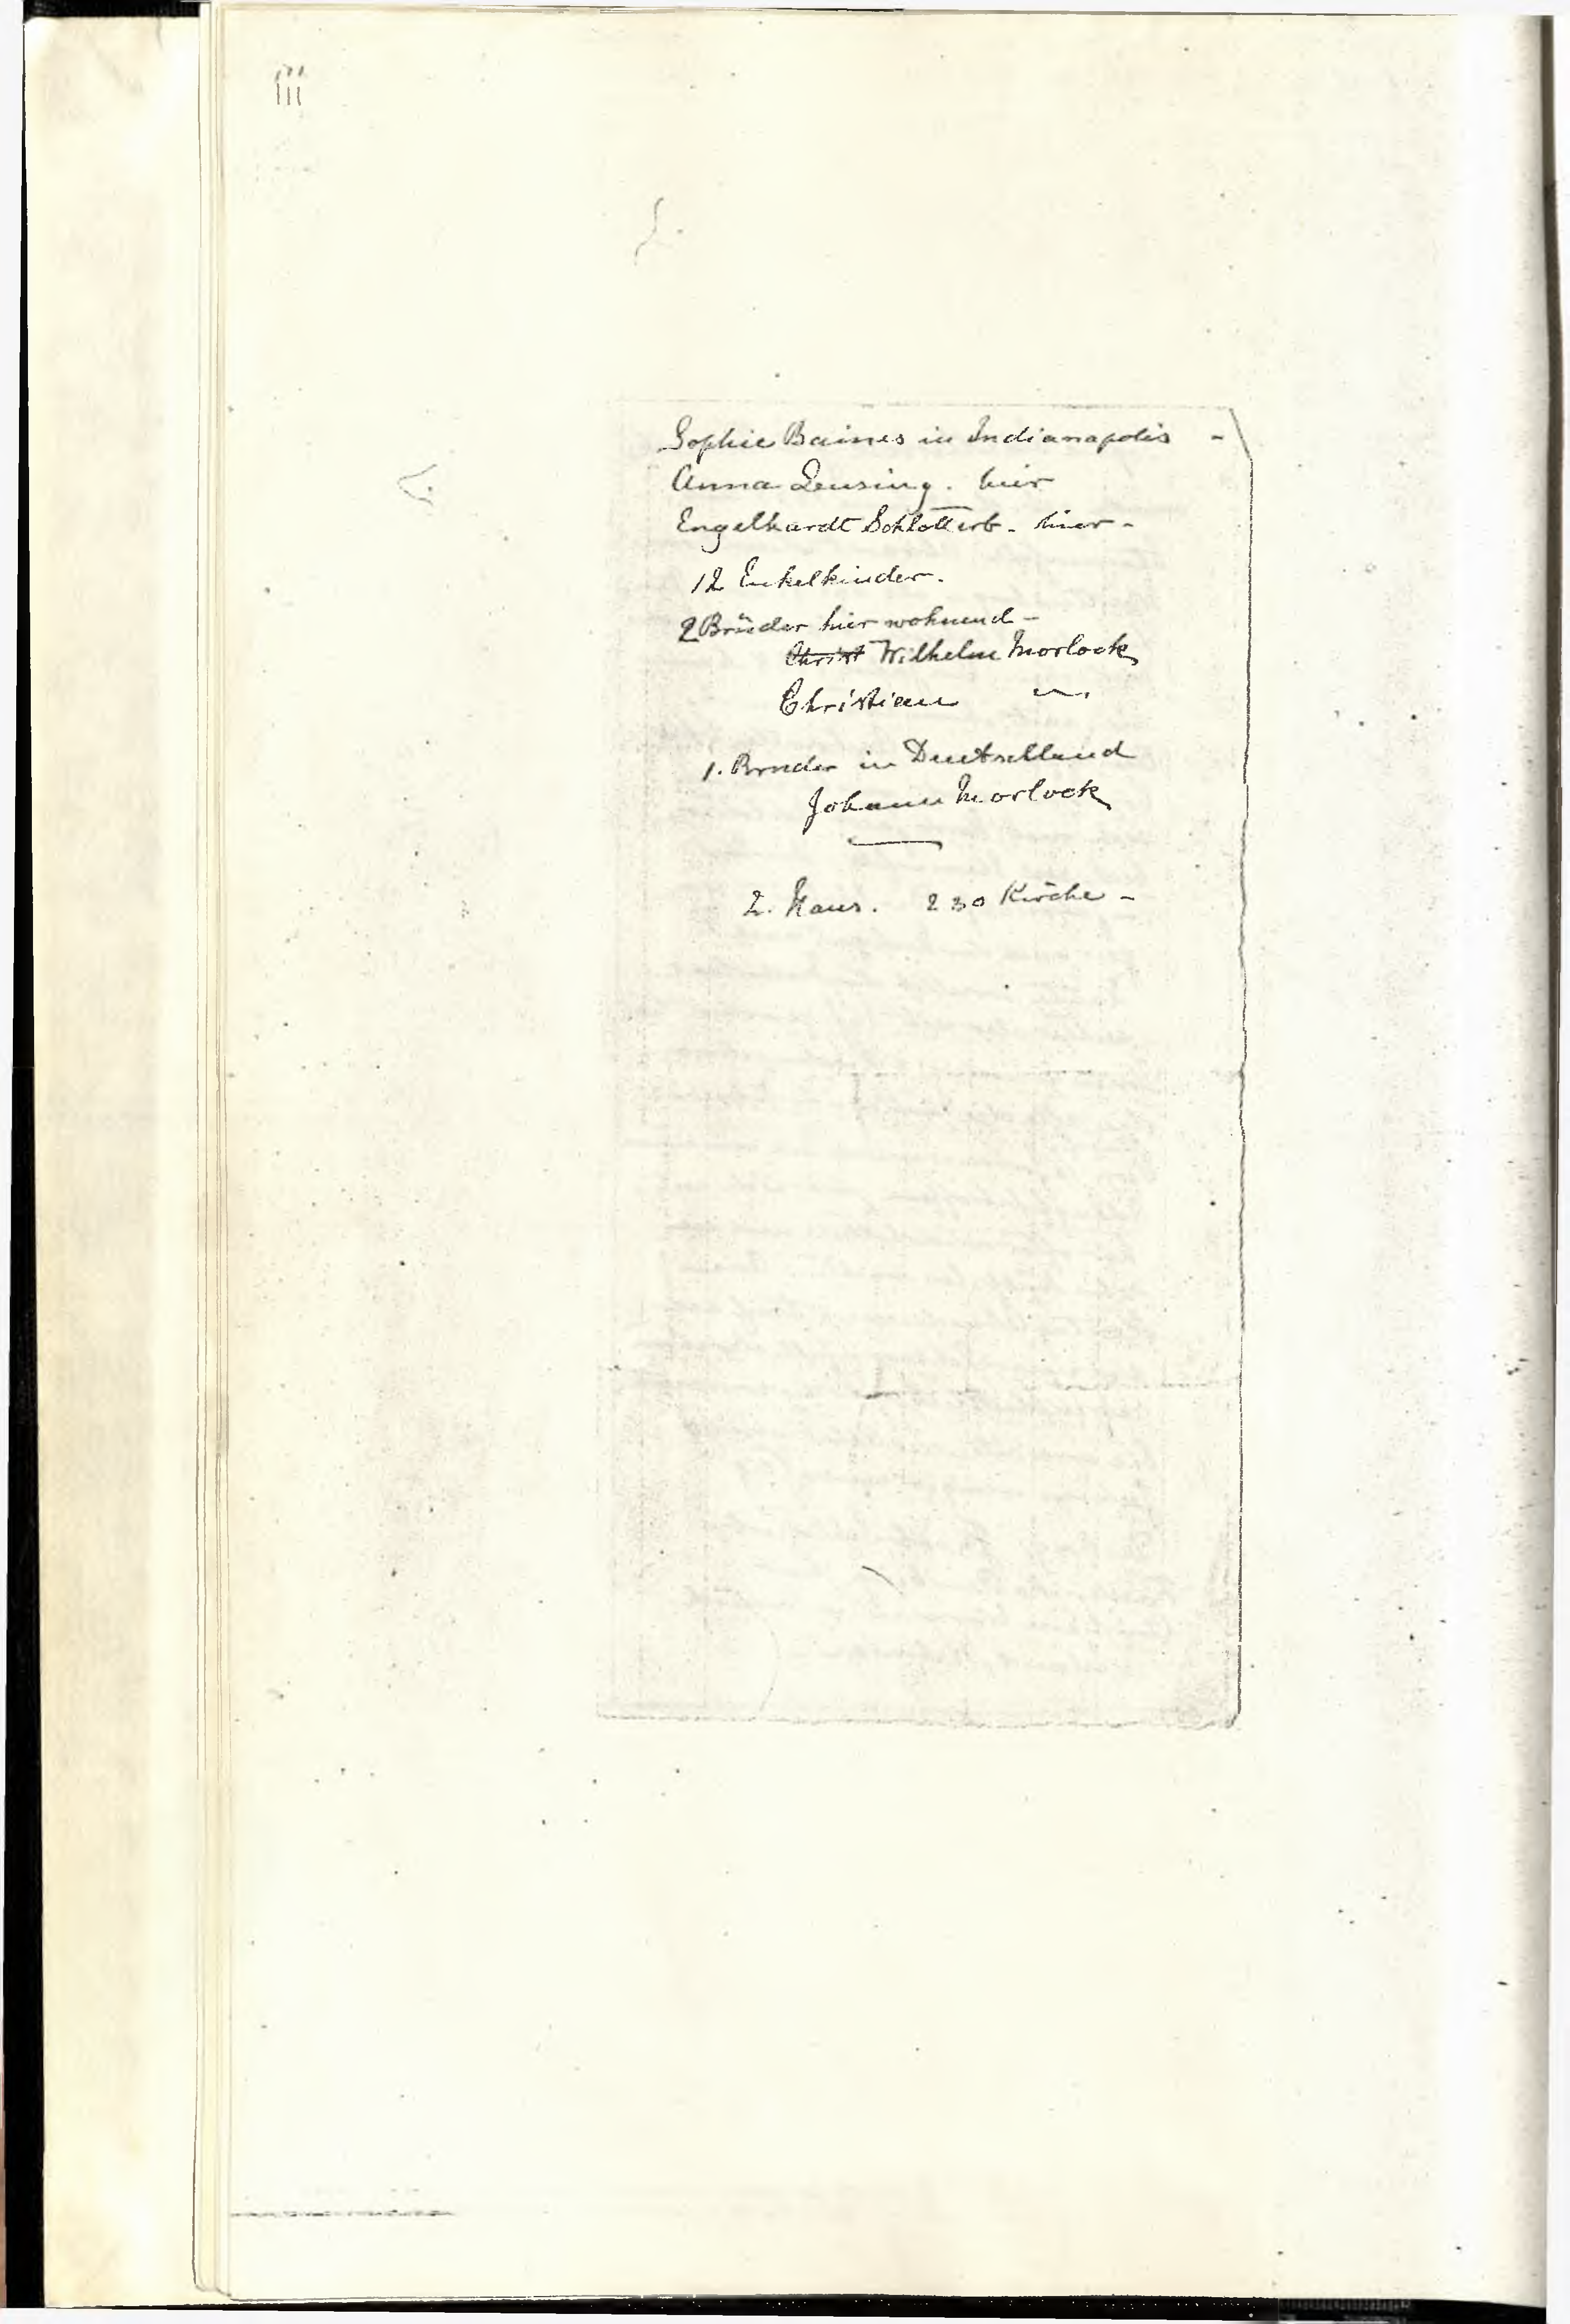 iii
Sophie Baines in Indianapolis -
Anna Leusing. hier
Engelhardt Schlotterb. hier -
12 Enkelkinder.
2 Brüder hier wohnend -
Christ Wilhelm Morlock
Christian 〃
1. Bruder in Deutschland
Johann Morlock
2. Haus. 2 30 Kirche -